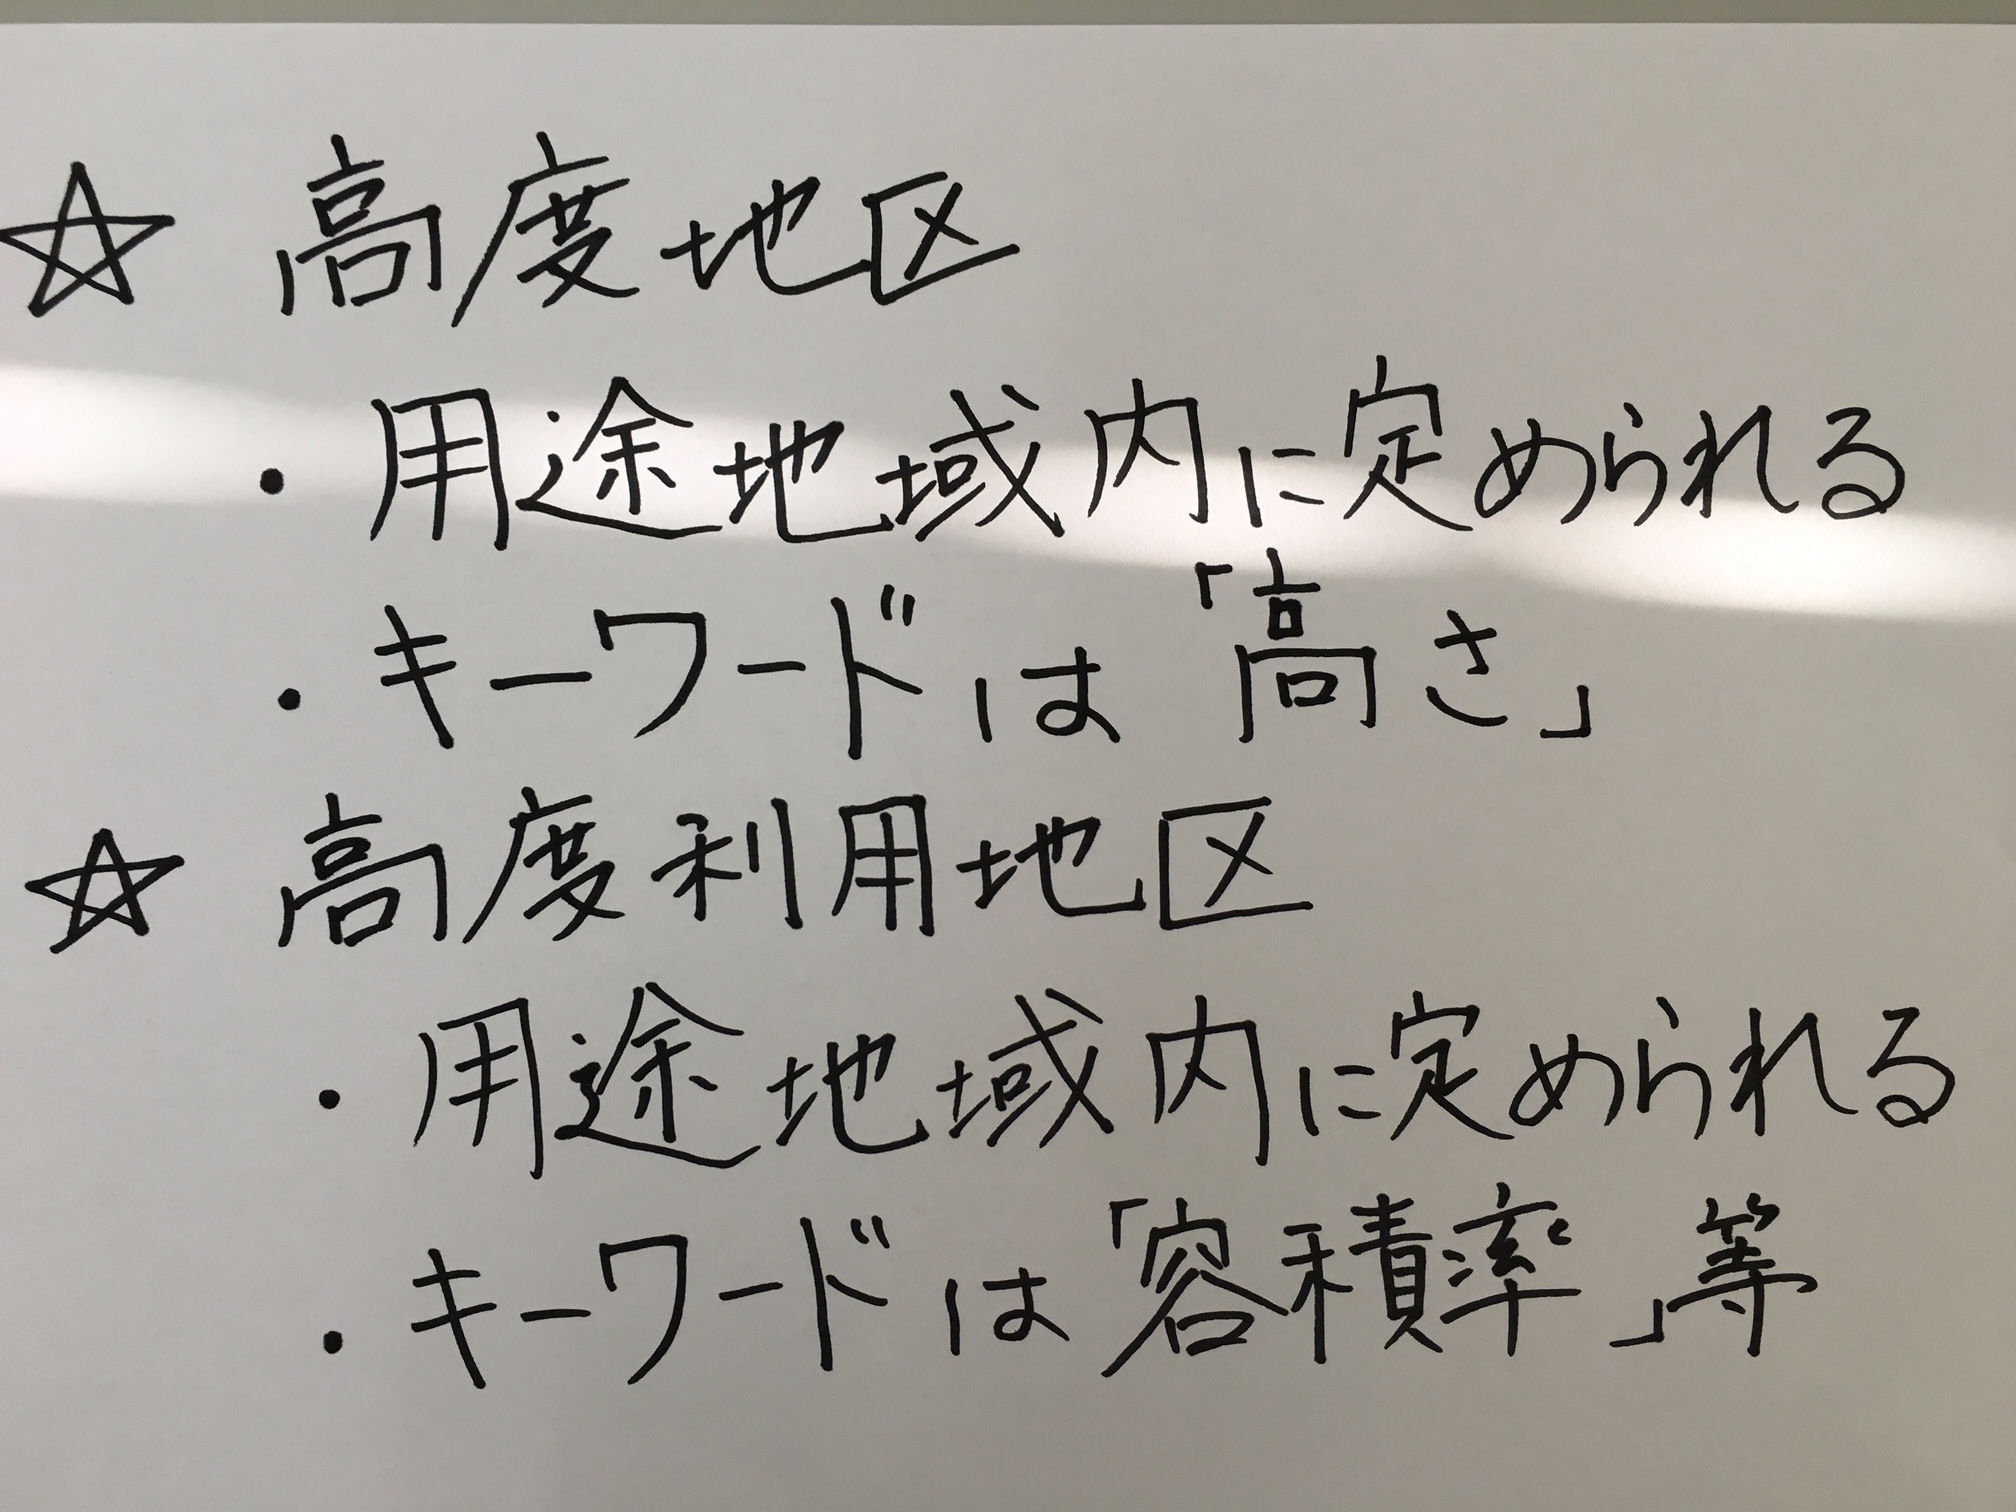 ☆ 高度地区
・用途地域内に定められる
・キーワードは「高さ」
☆ 高度利用地区
・用途地域内に定められる
・キーワードは「容積率」等